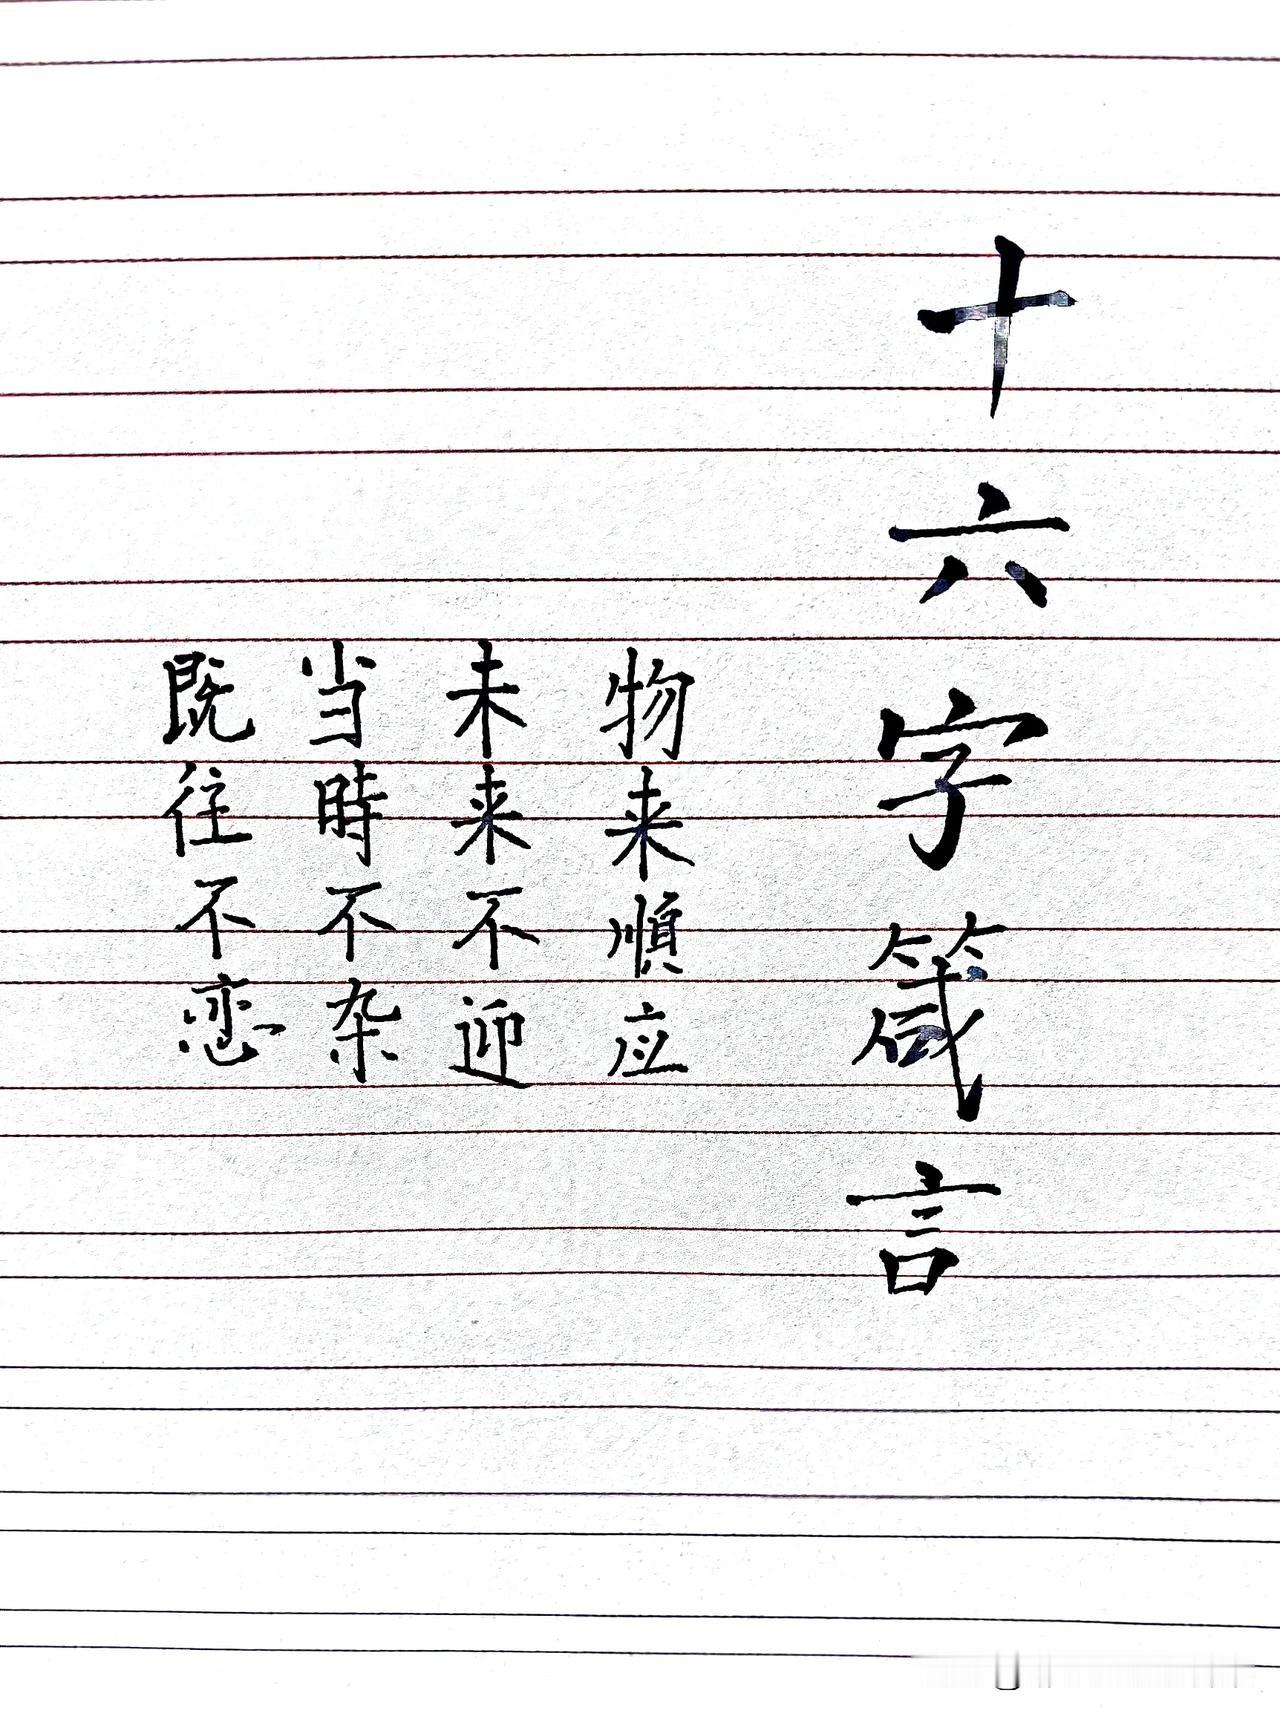 十六字箴言
物来順应
未来不迎
当時不杂
既往不恋